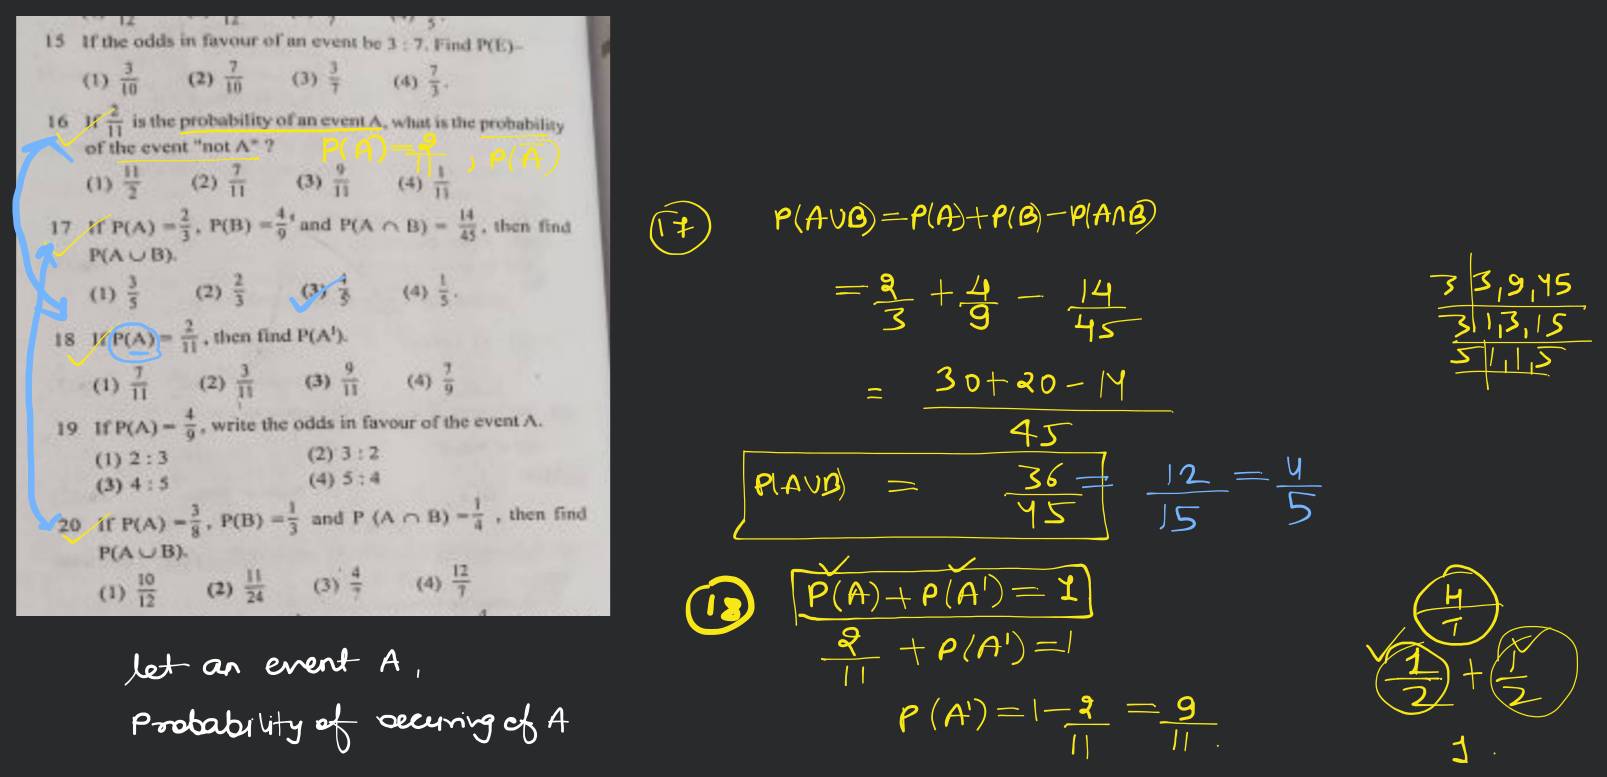 15 If the odds in favour of an event be 3 : 7. Find P(E)–
(1) 3/10 (2) 7/10 (3) 3/7 (4) 7/3.
16 If 2/11 is the probability of an event A, what is the probability
of the event "not A" ?
P(A)=2/11, P(A̅)
(1) 11/2 (2) 7/11 (3) 9/11 (4) 1/11
17 If P(A) = 2/3, P(B) = 4/9, and P(A ∩ B) = 14/45, then find
P(A ∪ B).
(1) 3/5 (2) 2/3 (3) 4/5 (4) 1/5.
18 If P(A) = 2/11, then find P(A').
(1) 7/11 (2) 3/11 (3) 9/11 (4) 7/9
19 If P(A) = 4/9, write the odds in favour of the event A.
(1) 2 : 3 (2) 3 : 2
(3) 4 : 5 (4) 5 : 4
20 If P(A) = 3/8, P(B) = 1/3 and P (A ∩ B) = 1/4, then find
P(A ∪ B).
(1) 10/12 (2) 11/24 (3) 4/7 (4) 12/7
let an event A,
Probability of occuring of A
17 P(A∪B)=P(A)+P(B)-P(A∩B)
= 2/3 + 4/9 - 14/45
= 30+20-14/45
P(A∪B) = 36/45 = 12/15 = 4/5
3 3,9,45
3 1,3,15
5 1,1,5
18 P(A)+P(A')=1
2/11 + P(A')=1
P(A')=1-2/11 = 9/11.
H
T
1/2 + 1/2
1.